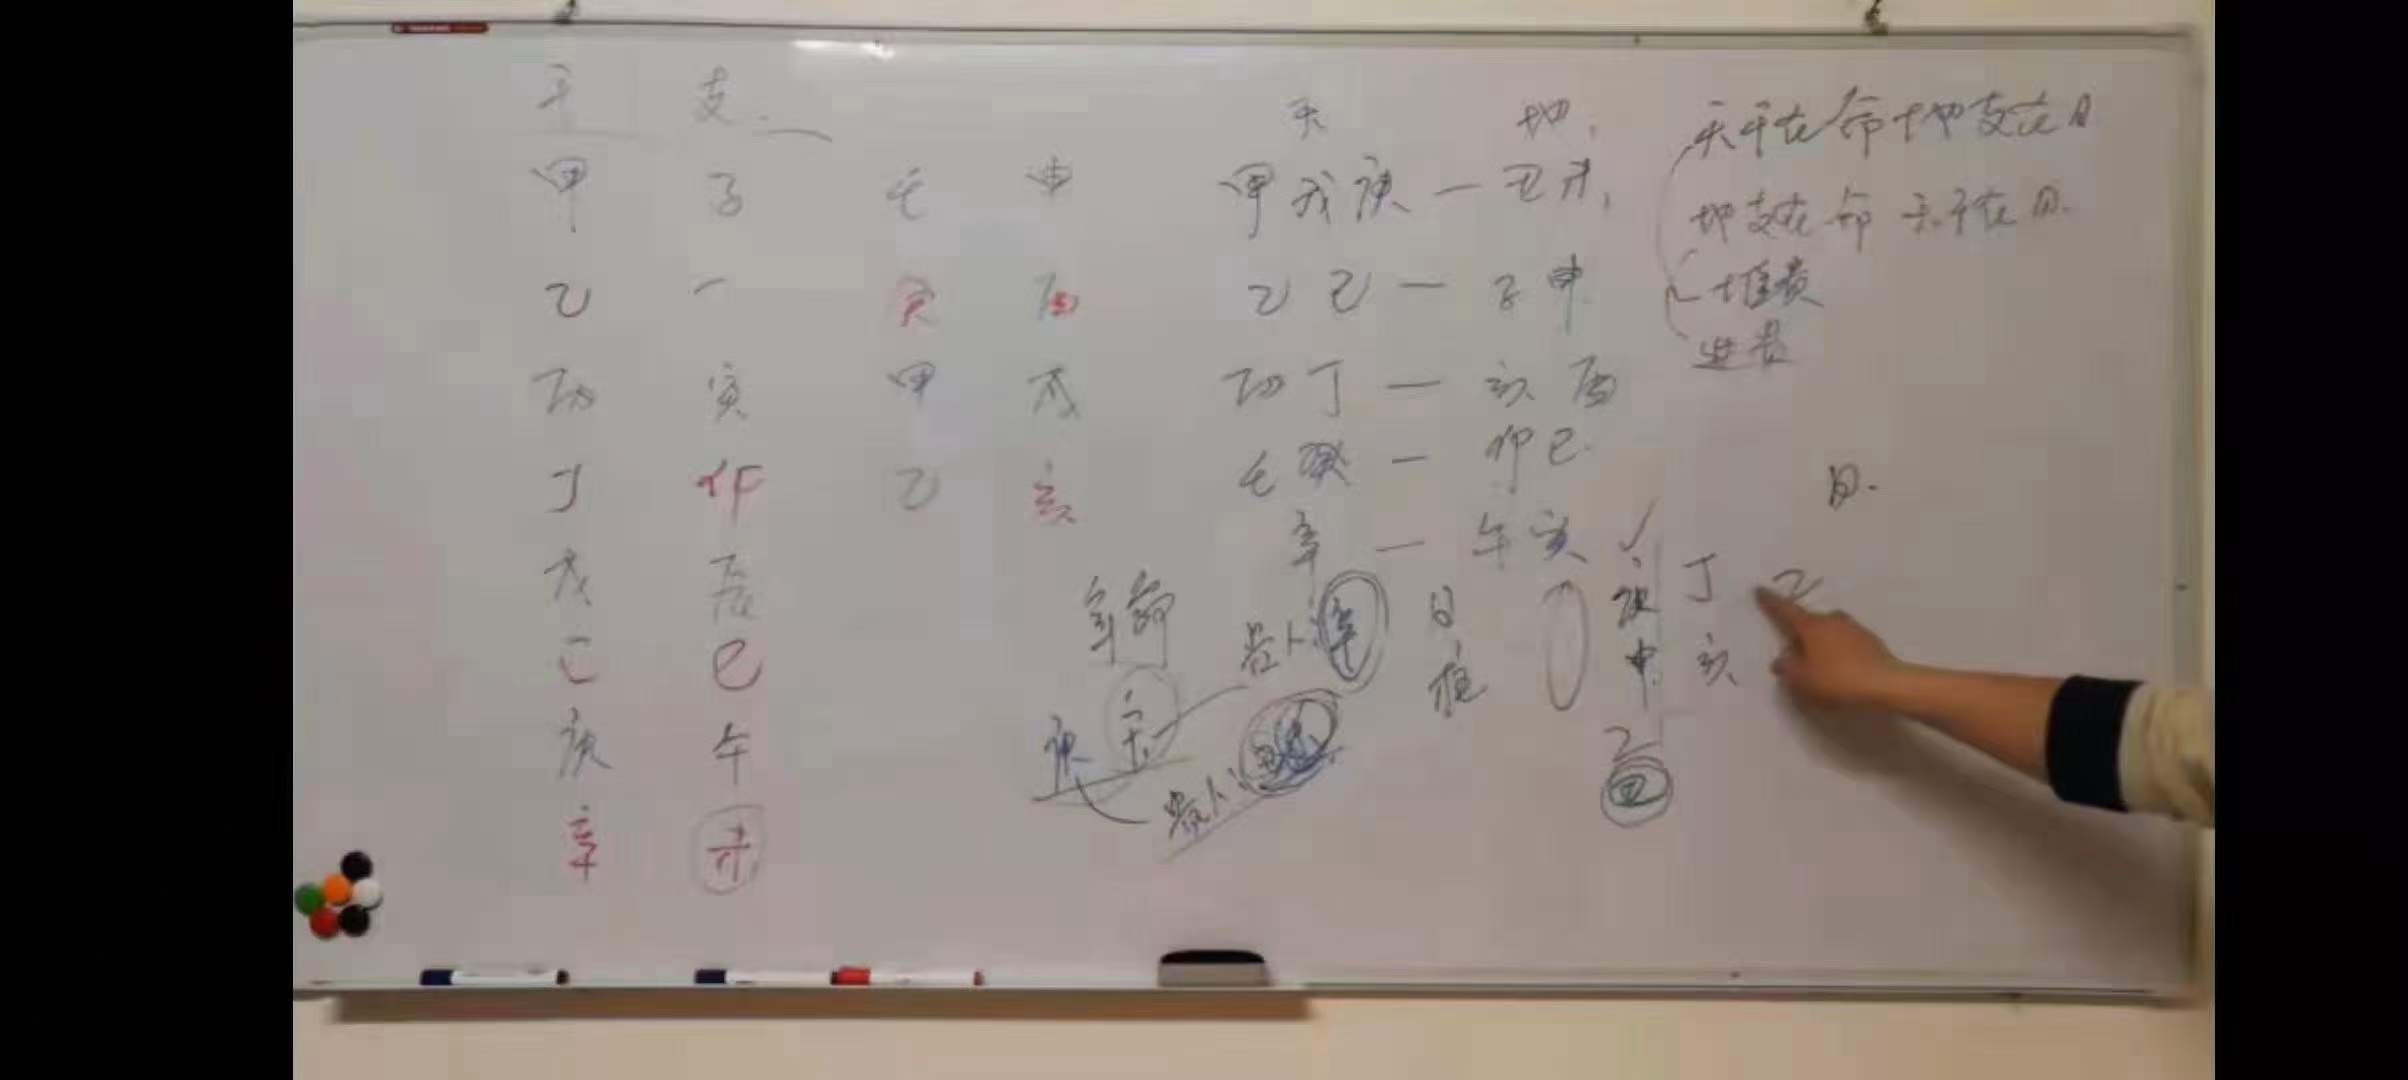 干 支
甲 子 壬 申
乙 一 癸 酉
丙 寅 甲 戌
丁 卯 乙 亥
戊 辰
己 巳
庚 午
辛 未
天 地
甲戊庚一丑未
乙己一子申
丙丁一亥酉
壬癸一卯巳
辛一午寅
天干在命地支在日
地支在命天干在日
堆贵
进贵
日
年命
庚
贵人
辛
日
贵人
庚 丁 乙
申 亥